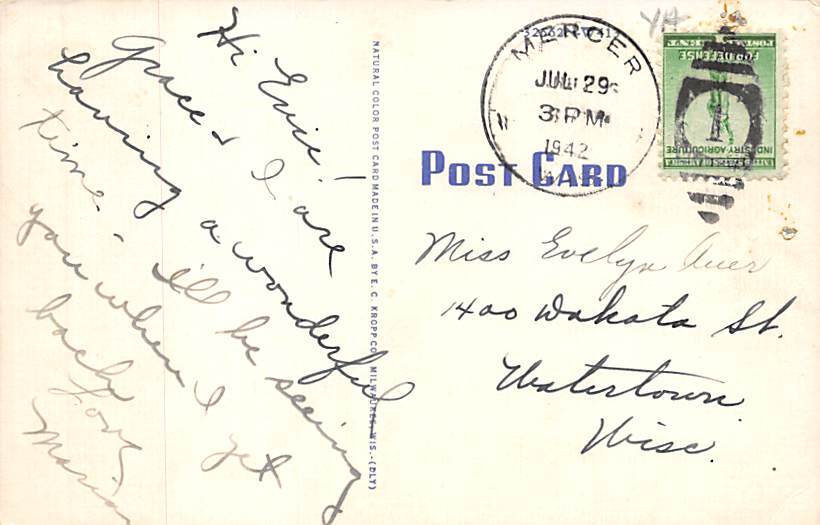 Hi Evie!
Grace & I are
having a wonderful
time. - I'll be seeing
you when I get
back
Love
Marian
NATURAL COLOR POST CARD MADE IN U.S.A. BY E. C. KROPP CO., MILWAUKEE, WIS.-(DLY)
POST CARD
MERCER
JUL 29
3 PM
1942
WIS.
POSTAGE 1 CENT
FOR DEFENSE
INDUSTRY AGRICULTURE
UNITED STATES OF AMERICA
1
Miss Evelyn Auer
1400 Dakota St.
Watertown
Wisc.